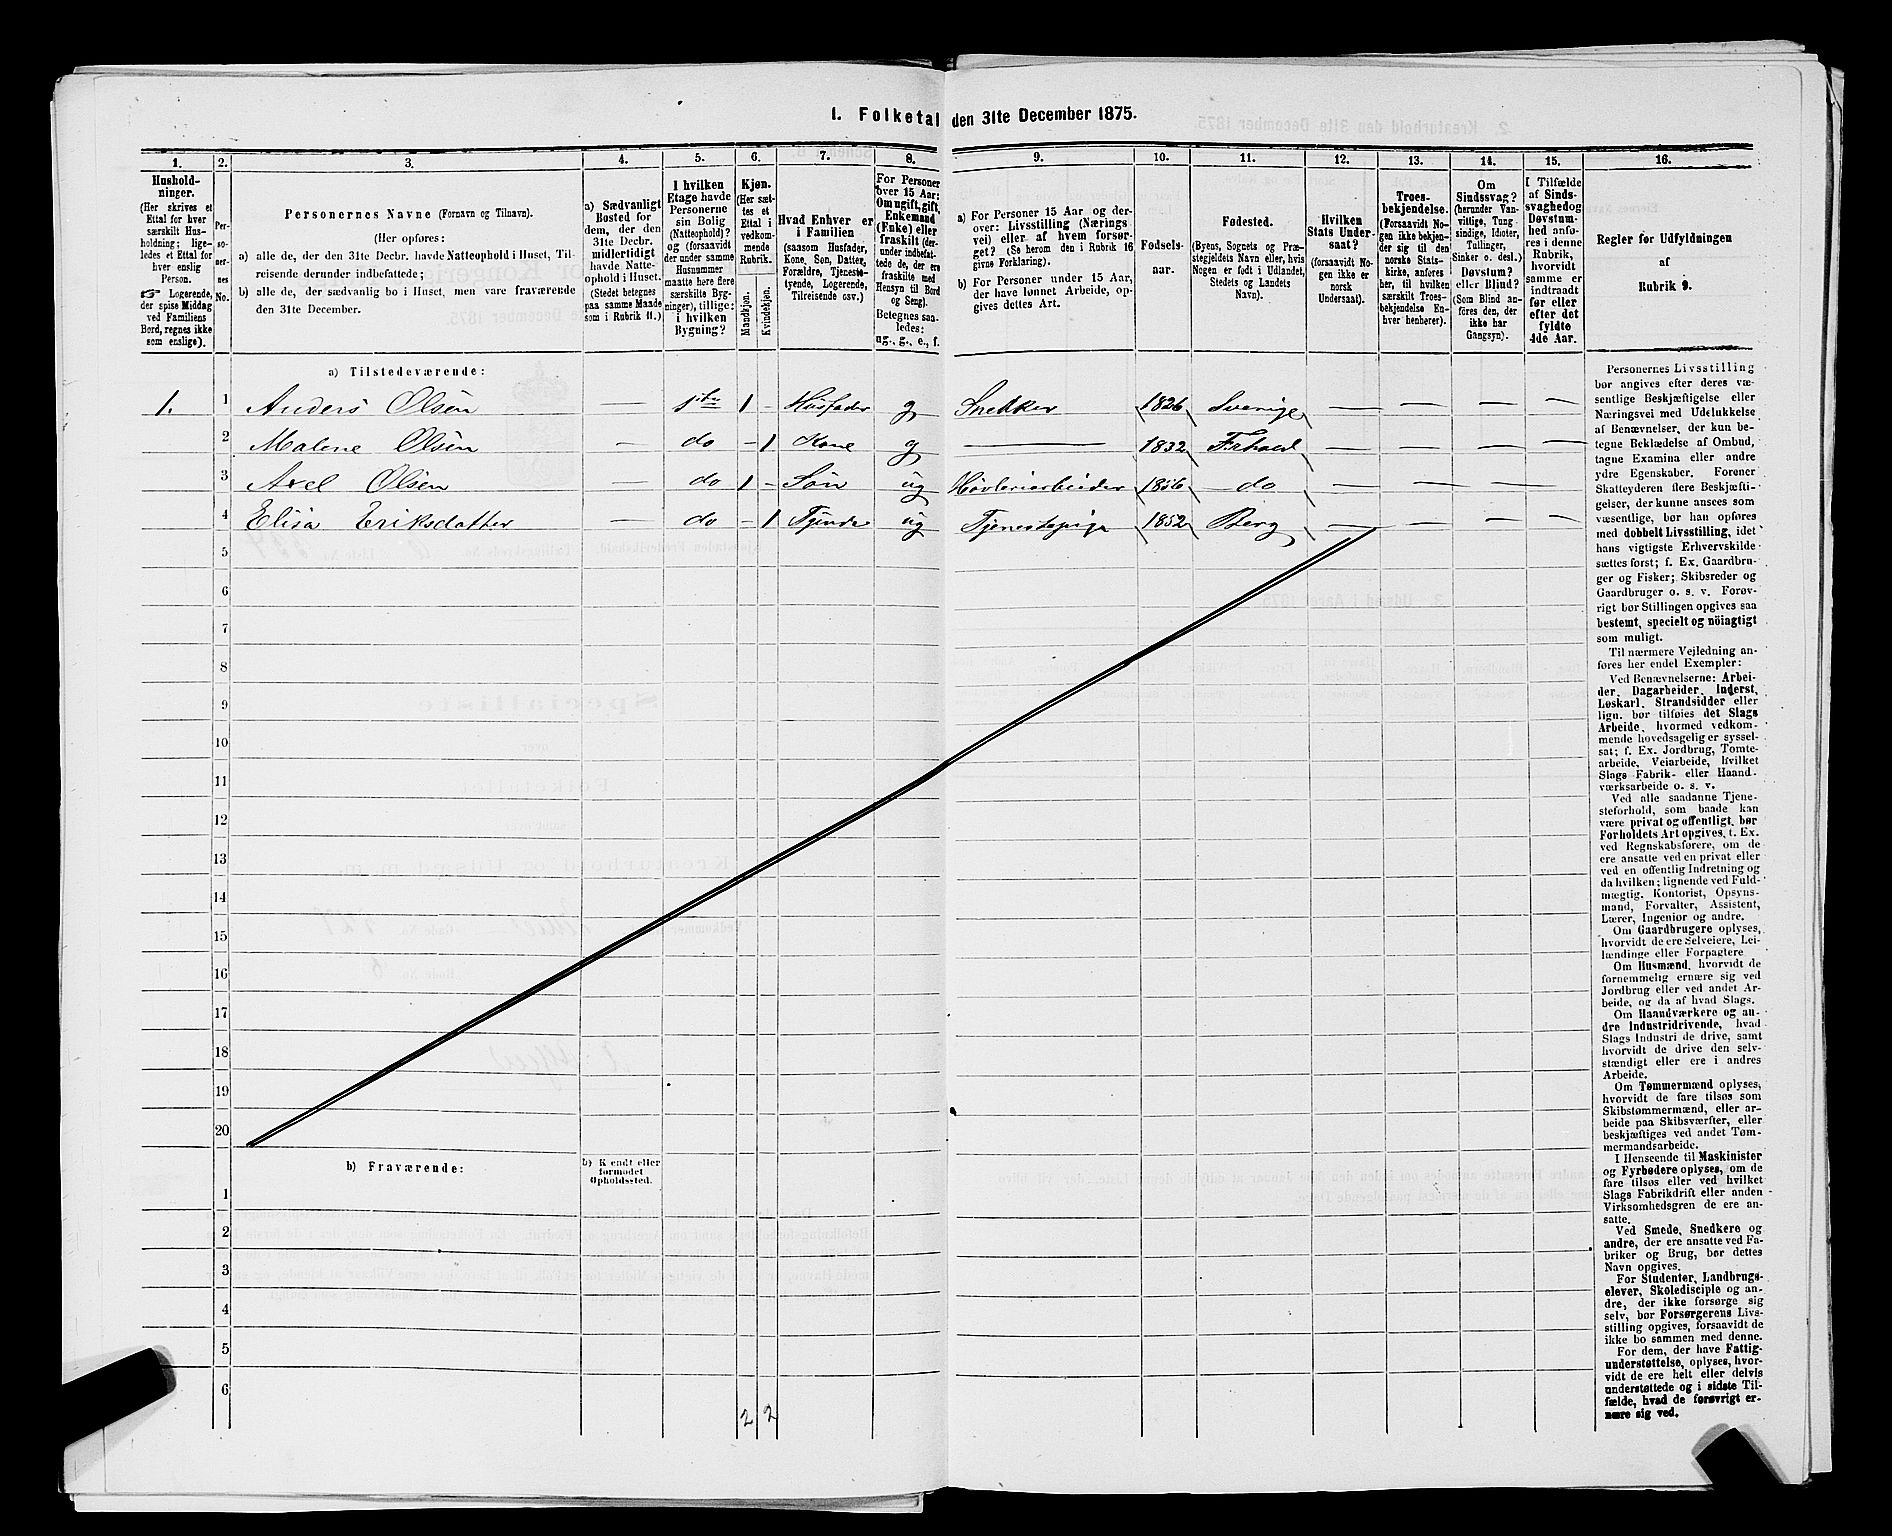 1. Folketal den 31te December 1875.
1. 2. 3. 4. 5. 6. 7. 8. 9. 10. 11. 12. 13. 14. 15. 16.
Hushold-
ninger.
(Her skrives et
Ettal for hver
særskilt Hus-
holdning; lige-
ledes et Ettal for
hver enslig
Person.
☞ Logerende,
der spise Middag
ved Familiens
Bord, regnes ikke
som enslige).
Per-
so-
ner-
nes
No.
Personernes Navne (Fornavn og Tilnavn).
(Her opføres:
a) alle de, der den 31te Decbr. havde Natteophold i Huset, Til-
reisende derunder indbefattede;
b) alle de, der sædvanlig bo i Huset, men vare fraværende
den 31te December.
a) Sædvanligt
Bosted for
dem, der den
31te Decbr.
midlertidigt
havde Natte-
ophold i Huset.
(Stedet betegnes
paa samme Maade
som i Rubrik 11.)
I hvilken
Etage havde
Personerne
sin Bolig
(Natteophold)?
og (forsaavidt
der under samme
Husnummer
maatte høre flere
særskilte Byg-
ninger), tillige:
i hvilken
Bygning?
Kjøn.
(Her sæt-
tes et
Ettal i
vedkom-
mende
Rubrik.
Mandkjøn.
Kvindekjøn.
Hvad Enhver er
i Familien
(saasom Husfader,
Kone, Søn, Datter,
Forældre, Tjeneste-
tyende, Logerende,
Tilreisende osv.)
For Personer
over 15 Aar:
Om ugift, gift,
Enkemand
(Enke) eller
fraskilt (der-
under indbefat-
tede de, der ere
fraskilte med
Hensyn til Bord
og Seng).
Betegnes saa-
ledes:
ug., g., e., f.
a) For Personer 15 Aar og der-
over: Livsstilling (Nærings-
vei) eller af hvem forsør-
get? (Se herom den i Rubrik 16
givne Forklaring).
b) For Personer under 15 Aar,
der have lønnet Arbeide, op-
gives dettes Art.
Fødsels-
aar.
Fødested.
(Byens, Sognets og Præ-
stegjeldets Navn eller, hvis
Nogen er født i Udlandet,
Stedets og Landets
Navn).
Hvilken
Stats Under-
saat?
(forsaavidt No-
gen ikke er
norsk
Undersaat).
Troes-
bekjendelse.
(Forsaavidt No-
gen ikke bekjen-
der sig til den
norske Stats-
kirke, anføres
her, til hvilken
særskilt Troes-
bekjendelse En-
hver henhører).
Om
Sindssvag?
(herunder Van-
vittige, Tung-
sindige, Idioter,
Tullinger,
Sinker o. desl.)
Døvstum?
eller Blind?
(Som Blind an-
føres den, der
ikke har
Gangsyn).
I Tilfælde
af Sinds-
svaghed og
Døvstum-
hed anfø-
res i denne
Rubrik,
hvorvidt
samme er
indtraadt
før eller
efter det
fyldte
4de Aar.
Regler for Udfyldningen
af
Rubrik 9.
a) Tilstedeværende:
1. 1 Anders Olsen — 1ste 1 - Husfader g Snedker 1826 Sverige — — — —
2 Malene Olsen — do - 1 Kone g — 1832 Frhald — — — —
3 Axel Olsen — do 1 - Søn ug Høvleriarbeider 1856 do — — — —
4 Elisa Eriksdatter — do - 1 Tjender ug Tjenestepige 1852 Berg — — — —
5
6
7
8
9
10
11
12
13
14
15
16
17
18
19
20
b) Fraværende:
b) Kjendt eller
formodet
Opholdssted.
1
2
3
4
5
6
2 2
Personernes Livsstilling
bør angives efter deres væ-
sentlige Beskjæftigelse eller
Næringsvei med Udelukkelse
af Benævnelser, der kun be-
tegne Beklædelse af Ombud,
tagne Examina eller andre
ydre Egenskaber. Forener
Skatteyderen flere Beskjæfti-
gelser, der kunne ansees som
væsentlige, bør han opføres
med dobbelt Livsstilling, idet
hans vigtigste Erhvervskilde
sættes først; f. Ex. Gaardbru-
ger og Fisker; Skibsreder og
Gaardbruger o. s. v. Forøv-
rigt bør Stillingen opgives saa
bestemt, specielt og nøiagtigt
som muligt.
Til nærmere Vejledning an-
føres her endel Exempler:
Ved Benævnelserne: Arbei-
der, Dagarbeider, Inderst,
Løskarl, Strandsidder eller
lign. bør tilføies det Slags
Arbeide, hvormed vedkom-
mende hovedsagelig er syssel-
sat; f. Ex. Jordbrug, Tomte-
arbeide, Veiarbeide, hvilket
Slags Fabrik- eller Haand-
værksarbeide o. s. v.
Ved alle saadanne Tjene-
steforhold, som baade kan
være privat og offentligt, bør
Forholdets Art opgives, t. Ex.
ved Regnskabsførere, om de
ere ansatte ved en privat eller
ved en offentlig Indretning og
da hvilken; lignende ved Fuld-
mægtig, Kontorist, Opsyns-
mand, Forvalter, Assistent,
Lærer, Ingeniør og andre.
Om Gaardbrugere oplyses,
hvorvidt de ere Selveiere, Lei-
lændinge eller Forpagtere
Om Husmænd, hvorvidt de
fornemmelig ernære sig ved
Jordbrug eller ved andet Ar-
beide, og da af hvad Slags.
Om Haandværkere og an-
dre Industridrivende, hvad
Slags Industri de drive, samt
hvorvidt de drive den selv-
stændigt eller ere i andres
Arbeide.
Om Tømmermænd oplyses,
hvorvidt de fare tilsøs som
Skibstømmermænd, eller ar-
beide paa Skibsværfter, eller
beskjæftiges ved andet Tøm-
mermandsarbeide.
I Henseende til Maskinister
og Fyrbødere oplyses, om de
fare tilsøs eller ved hvilket
Slags Fabrikdrift eller anden
Virksomhedsgren de ere an-
satte.
Ved Smede, Snedkere og
andre, der ere ansatte ved Fa-
briker og Brug, bør dettes
Navn opgives.
For Studenter, Landbrugs-
elever, Skoledisciple og an-
dre, der ikke forsørge sig
selv, bør Forsørgerens Livs-
stilling opgives, forsaavidt de
ikke bo sammen med denne.
For dem, der have Fattig-
understøttelse, oplyses, hvor-
vidt de ere helt eller delvis
understøttede og i sidste Til-
fælde, hvad de forøvrigt er-
nære sig ved.